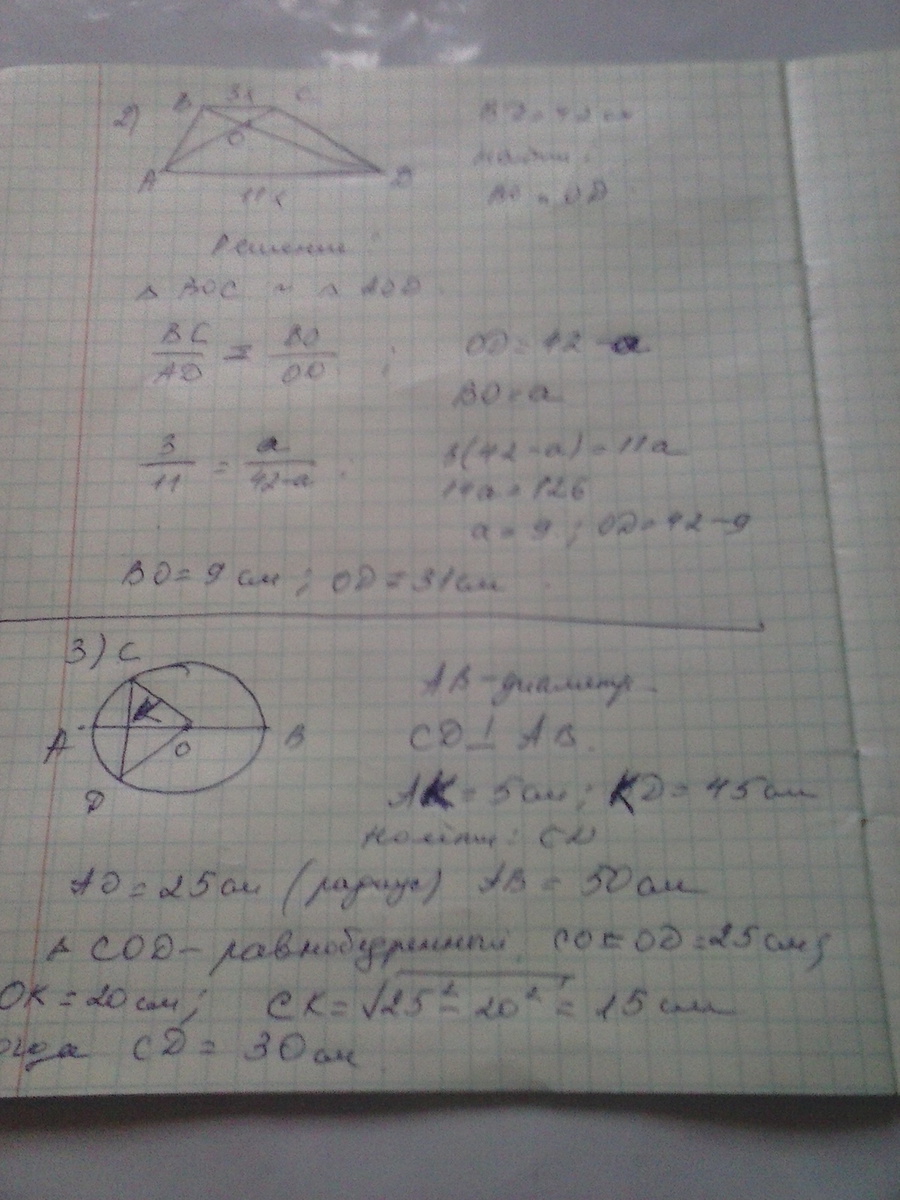 2) B 3x C
O
A D
11x
BD = 42 см
Найти:
BO и OD
Решение:
△ BOC ~ △ AOD.
BC/AD = BO/OD ; OD = 42 - a
BO = a
3/11 = a/42-a ; 3(42-a) = 11a
14a = 126
a = 9 ; OD = 42 - 9
BO = 9 см ; OD = 31 см .
3) C
K
A O B
D
AB - диаметр.
CD ⊥ AB.
AK = 5 см ; KD = 45 см
CD
AO = 25 см (радиус) AB = 50 см
△ COD - равнобедренный. CO = OD = 25 см ;
OK = 20 см ; CK = √25² - 20² = 15 см
огда CD = 30 см